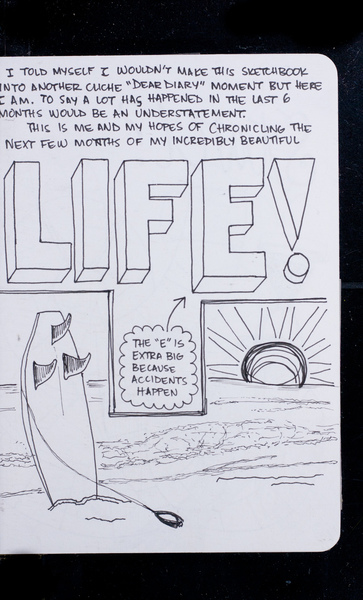 I TOLD MYSELF I WOULDN'T MAKE THIS SKETCHBOOK
INTO ANOTHER CLICHE "DEAR DIARY" MOMENT BUT HERE
I AM. TO SAY A LOT HAS HAPPENED IN THE LAST 6
MONTHS WOULD BE AN UNDERSTATEMENT.
THIS IS ME AND MY HOPES OF CHRONICLING THE
NEXT FEW MONTHS OF MY INCREDIBLY BEAUTIFUL
LIFE!
THE "E" IS
EXTRA BIG
BECAUSE
ACCIDENTS
HAPPEN